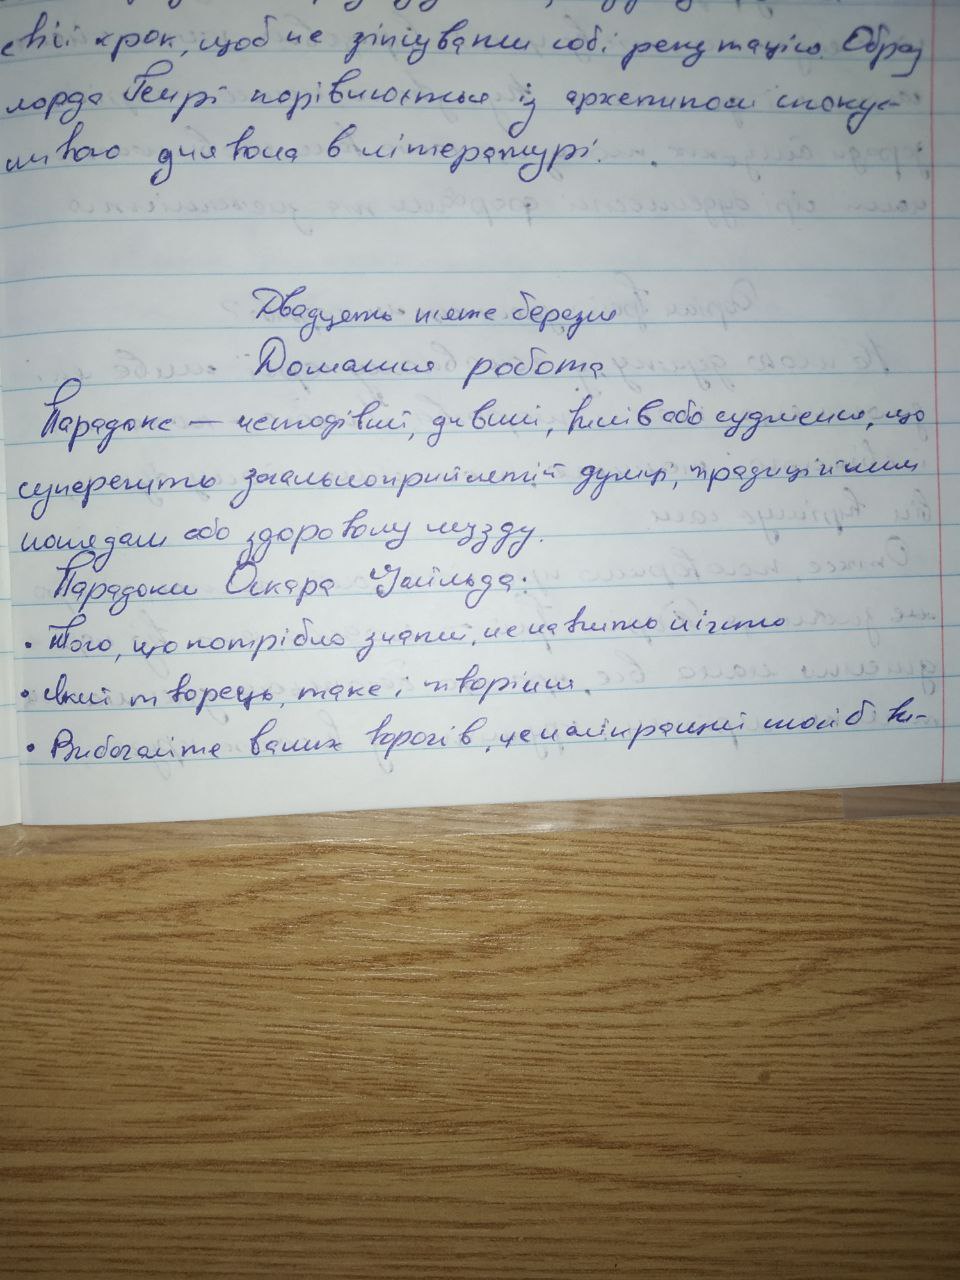 свій крок, щоб не зіпсувати собі репутацію. Образ
лорда Генрі порівнюється із архетипом спокус-
ливого диявола в літературі.
Двадцять п'яте березня
Домашня робота
Парадокс — несподіваний, дивний, вислів або судження, що
суперечить загальноприйнятій думці, традиційним
поглядам або здоровому глузду.
Парадокси Оскара Уайльда:
• Того, що потрібно знати, не навчить ніхто
• Який творець, таке і творіння
• Вибачайте ваших ворогів, це найкращий спосіб ви-